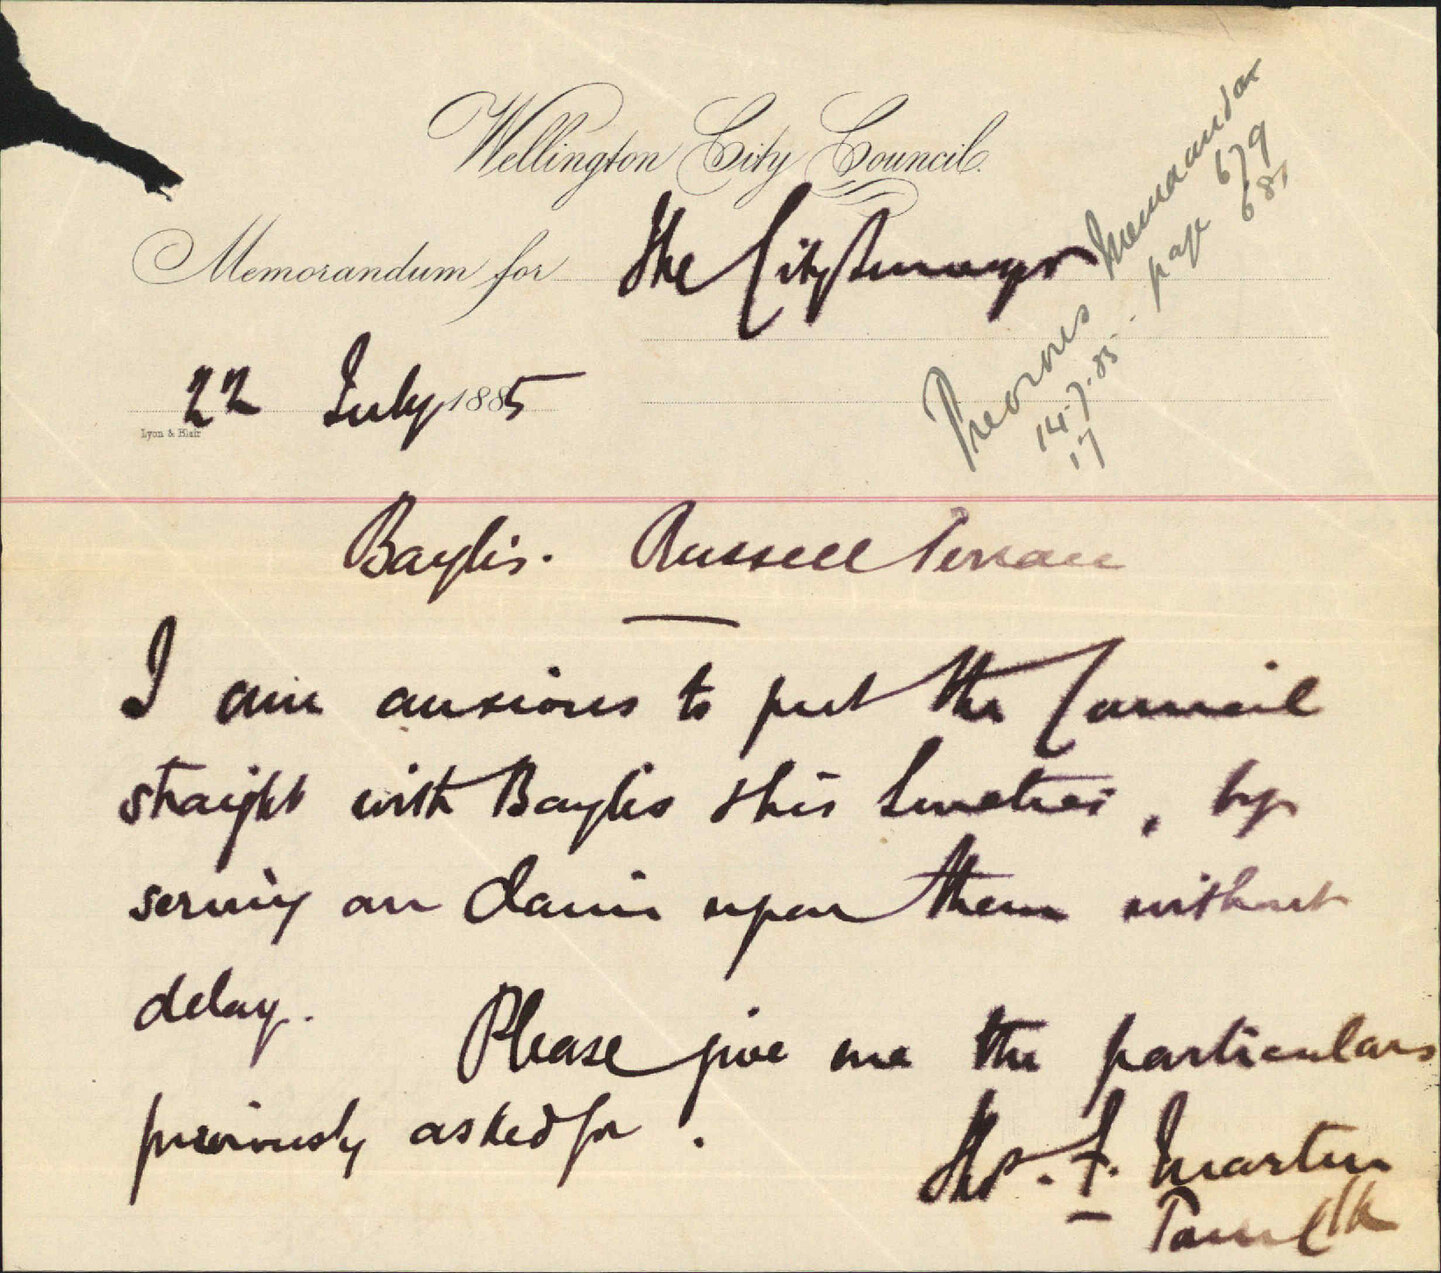 Wellington City Council.
Memorandum for The City Surveyor
Previous Memoranda
14.7.85 . . page 679
17 681
22 July 1885
Lyon & Blair
Baylis. Russell Terrace
I am anxious to put the Council
straight with Baylis this time, by
serving an claim upon them without
delay.
Please give me the particulars
previously asked for.
Thos. F. Martin
Town Clk